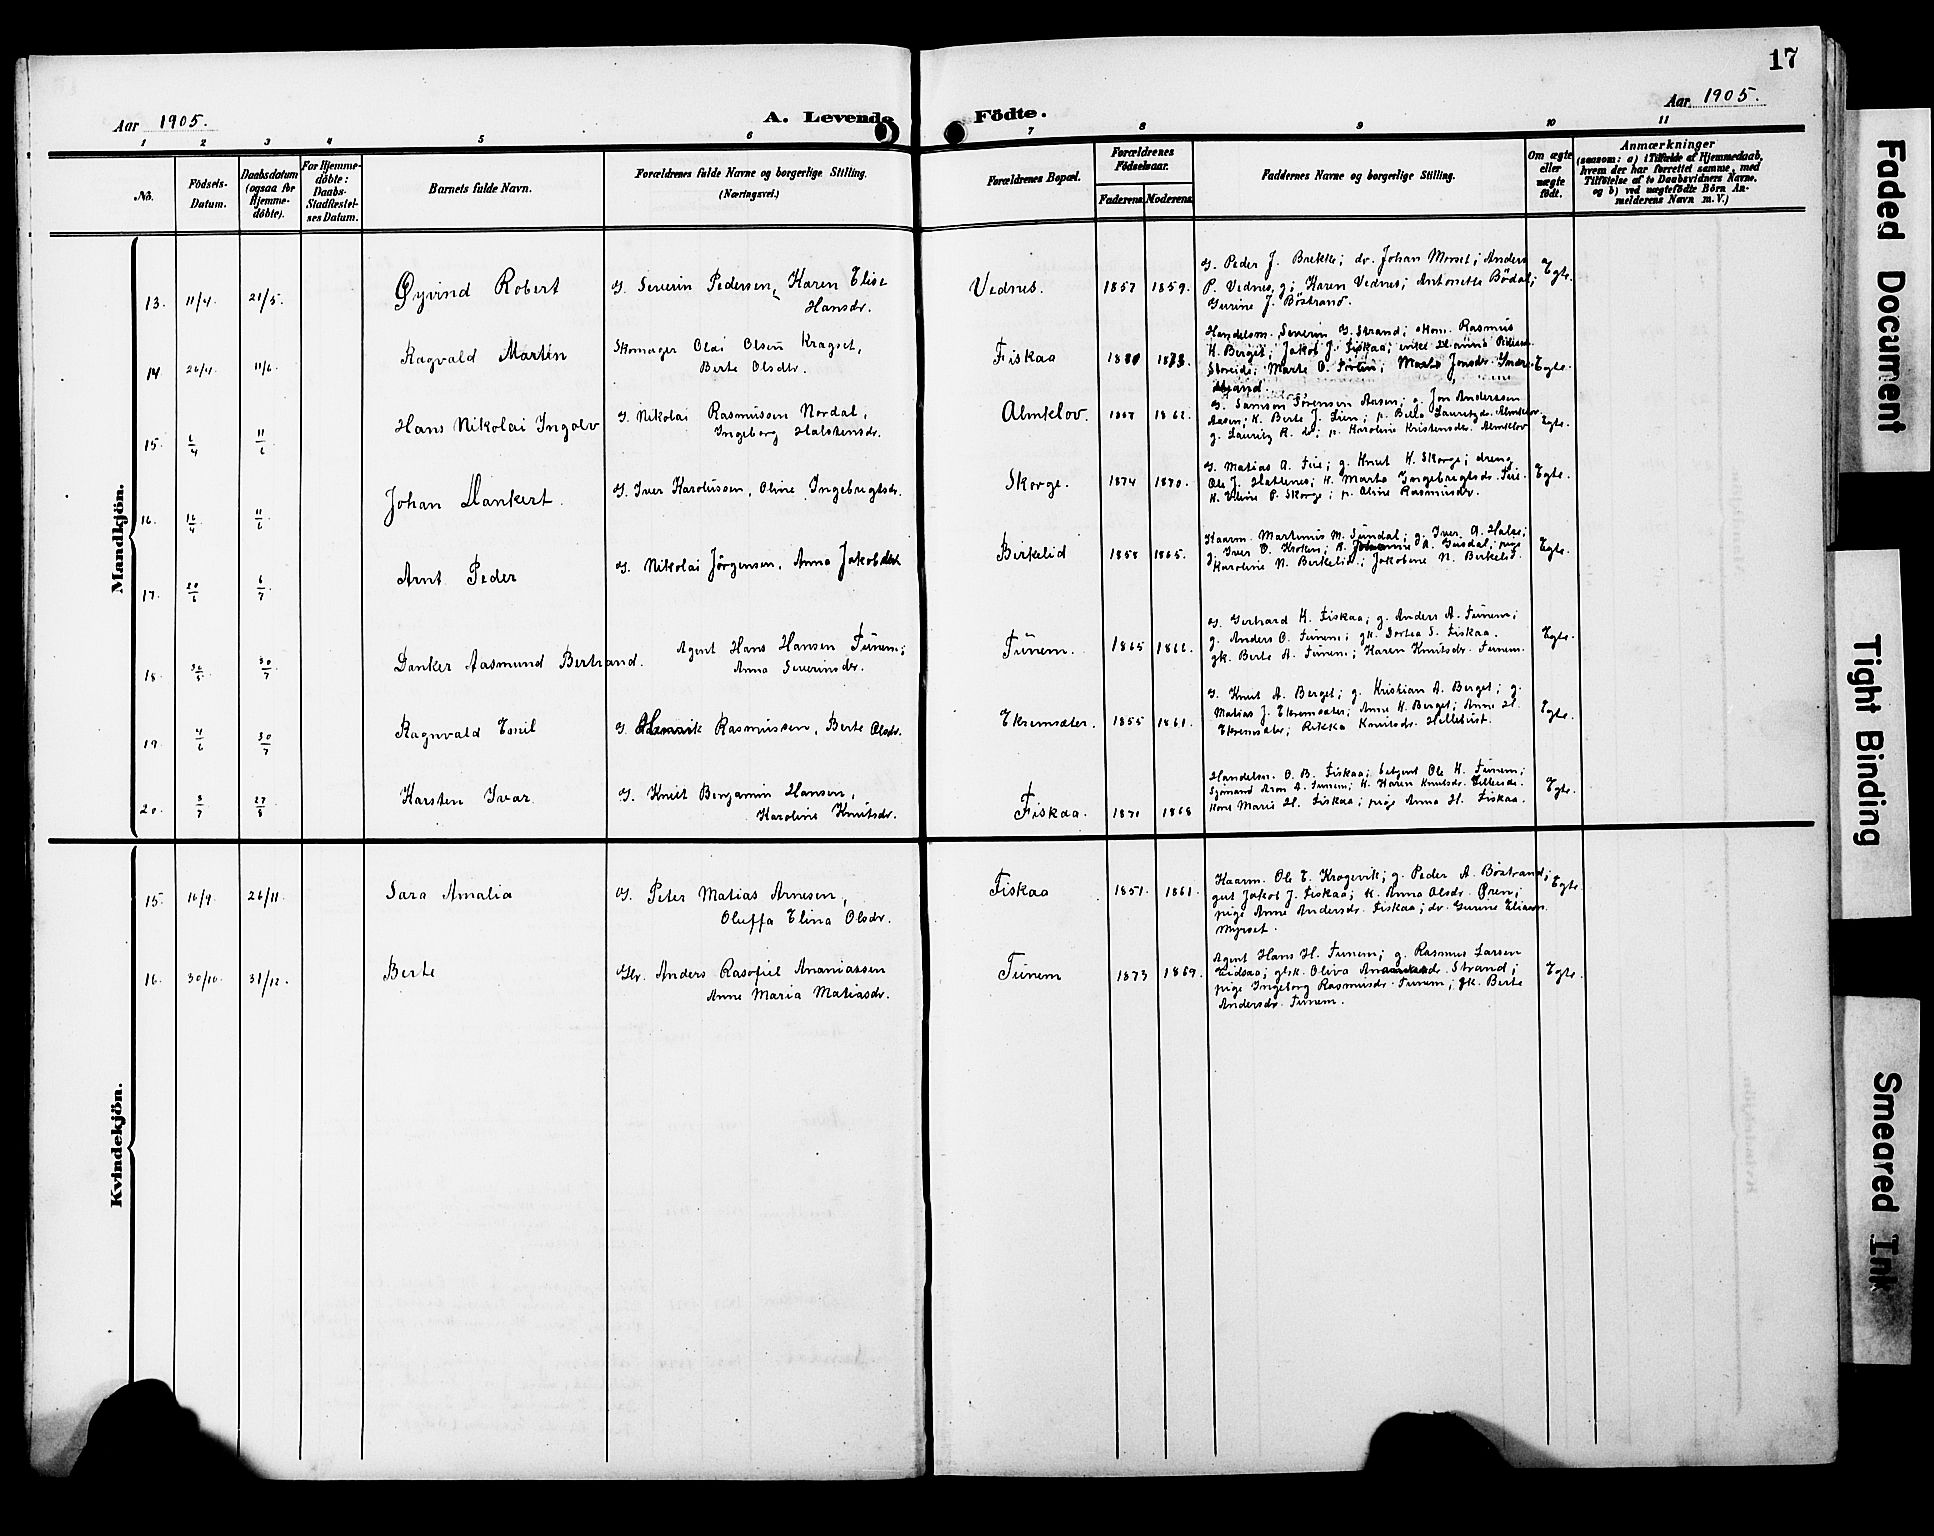 17
Aar 1905.
A. Levende Födte.
Aar 1905.
1 2 3 4 5 6 7 8 9 10 11
No.
Födsels-Datum.
Daabsdatum (ogsaa for Hjemme-döbte).
For Hjemme-döbte: Daabs-Stadfæstel-ses Datum.
Barnets fulde Navn.
Forældrenes fulde Navne og borgerlige Stilling.
(Næringsvei.)
Forældrenes Bopæl.
Forældrenes Födselsaar.
Faderens Moderens
Faddernes Navne og borgerlige Stilling.
Om ægte eller uægte födt.
Anmærkninger
(saasom: a) i Tilfælde af Hjemmedaab,
hvem der har forrettet samme, med
Tilföielse af to Daabsvidners Navne,
og b) ved uægtefödte Börn An-
melderens Navn m. V.)
Mandkjön.
13. 11/4. 21/5. Øyvind Robert G. Severin Pedersen, Karen Elise
Hansdr.
Vednes. 1857 1859.
G. Peder J. Brekke; dr. Johan Morset; Anders
P. Vednes, g; Karen Vednes; Antonette Bödal;
Gurine J. Böstrand.
Egte.
14 26/4. 11/6. Ragvald Martin Skomager Olai Olsen Kragset,
Berte Olsdtr.
Fiskaa
Handelsm. Severin G. Strand; skom. Rasmus
K. Berget; Jakob J. Fiskaa; enke
Marte O. Jonsdr.
Egte.
15. 6/4 11/6 Hans Nikolai Ingolv G. Nikolai Rasmussen Nordal,
Ingeborg Halstensdr.
Almklov. 1862.
G. Samson Sörensen Aasen; g. Jon Anderssen
Aasen; K. Berte J. Lien; p. Berte Lauritzdr. Almklov
g. Lauritz R. do; p. Karoline Kristensdr. Almklov
Egte.
16. 16/4 11/6 Johan Dankert. G. Iver Karolussen, Oline Ingebrigtsdr.
Skorge. 1874 1870.
G. Matias A. Fiie; g. Knut K. Skorge; dreng
Ole J. Hatlenes; K. Marte Ingebrigtsdr. Fiie.
K. P. Skorge; p. Oline Rasmusdr.
Egte.
17. 20/6 6/7 Arnt Peder G. Nikolai Jörgensen, Anna Jakobsdtr
Birkelid 1858 1865.
Kaarm. Martinus M. Sundal; g. Iver A. Halse;
g. Iver O. Kroken; K. Johanne A. Gusdal; pige
Karoline N. Birkelid; Jakobine N. Birkelid.
Egte.
18. 30/7 Danker Aasmund Bertrand. Agent Hans Hansen Tunem;
Anna Severinsdr.
Tunem. 1865 1866.
G. Gerhard K. Fiskaa; g. Anders A. Tunem;
g. Anders O. Tunem; gk. Dortea S. Fiskaa.
gk. Berte A. Tunem; Karen Knutsdr. Tunem.
Egte.
19. 4/6 30/7 Ragnvald Emil G. Rasmussen, Berte Olsdr.
Ekremsæter. 1855 1861.
G. Knut A. Berget; g. Kristian A. Berget; g.
Matias J. Ekremsæter; Anne K. Berget; Anne H.
Ekremsæter; Rikka Knutsdr. Hellebust.
Egte.
20. 3/7 27/8 Karsten Ivar. G. Knut Benjamin Hansen,
Karoline Knutsdr.
Fiskaa. 1871 1868
Handelsm. O. B. Fiskaa; Ole H. Tunem;
Sjömand Aron A. Tunem; K. Karen Knutsdr.
Kone Marie H. Fiskaa; pige Anna H. Fiskaa.
Egte.
Kvindekjön.
15. 16/9. 26/11. Sara Amalia G. Peter Matias Arnesen,
Oluffa Elina Olsdr.
Fiskaa 1851. 1861.
Kaarm. Ole E. Kragevik; g. Peder A. Böstrand;
gut Jakob J. Fiskaa; K. Anna Olsdr. Ören;
pige Anne Andersdr. Fiskaa; dr. Gurine
Myrset.
Egte
16. 30/10. 31/12. Berte Gbr. Anders Rasofiel Ananiassen
Anne Maria Matiasdr.
Tunem 1873 1869.
Agent Hans H. Tunem; g. Rasmus Larsen
Eidsaa; gbsk. Oliva Strand;
pige Ingeborg Rasmusdr. Tunem; gk. Berte
Andersdr. Tunem.
Egte.
Faded Document
Tight Binding
Smeared Ink